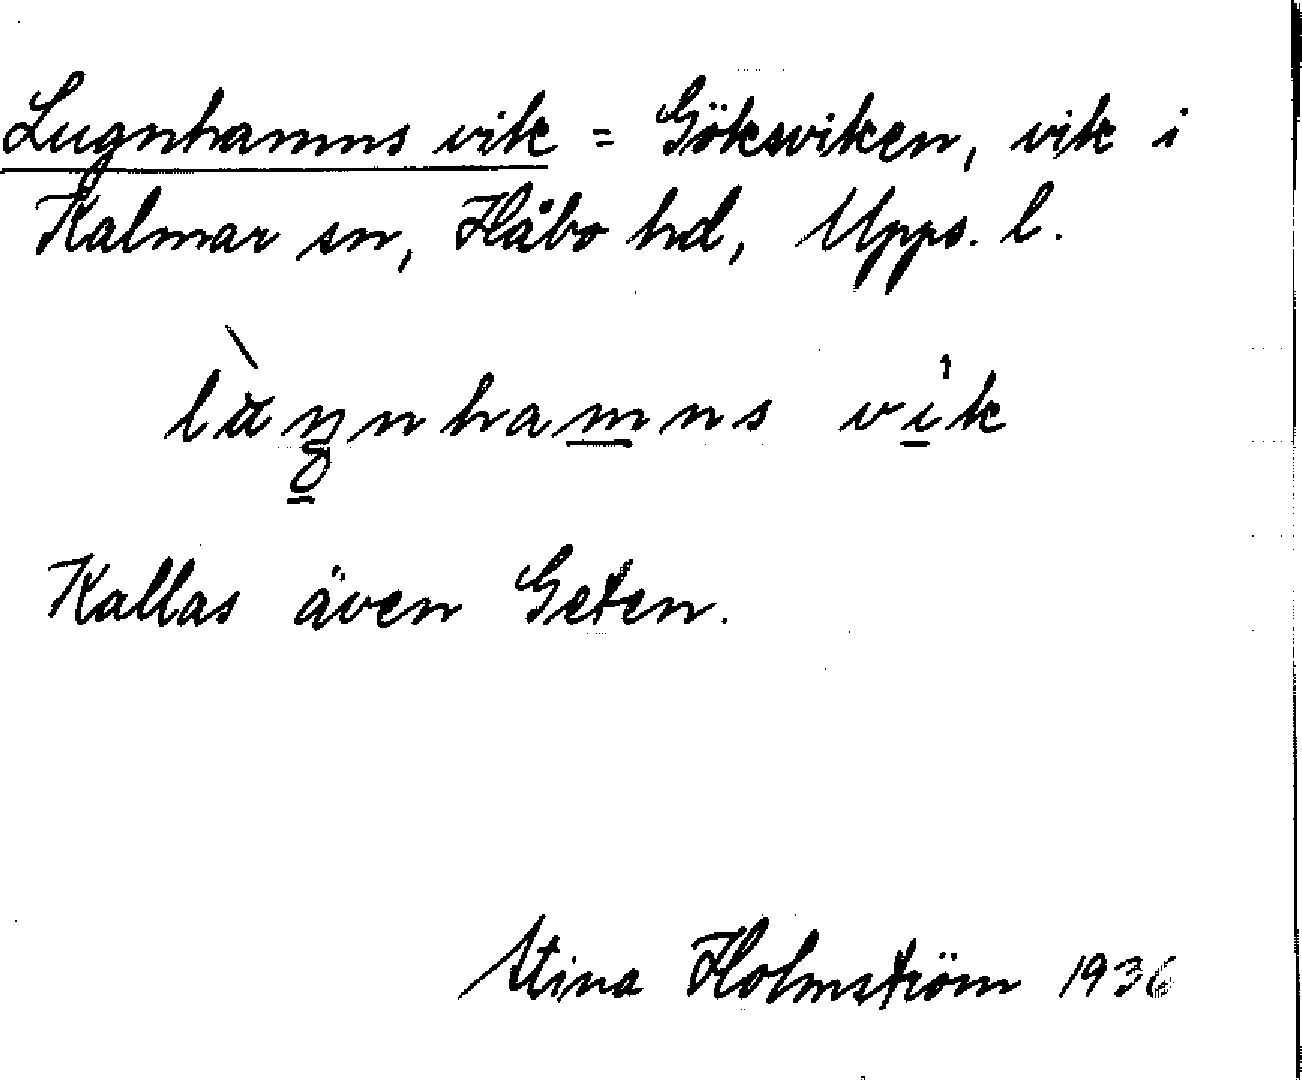 Lugnhamns vik = Göksviken, vik i
Kalmar sn, Håbo hd, Upps. l.
vik
Kallas även Geten.
Stina Holmström 1936